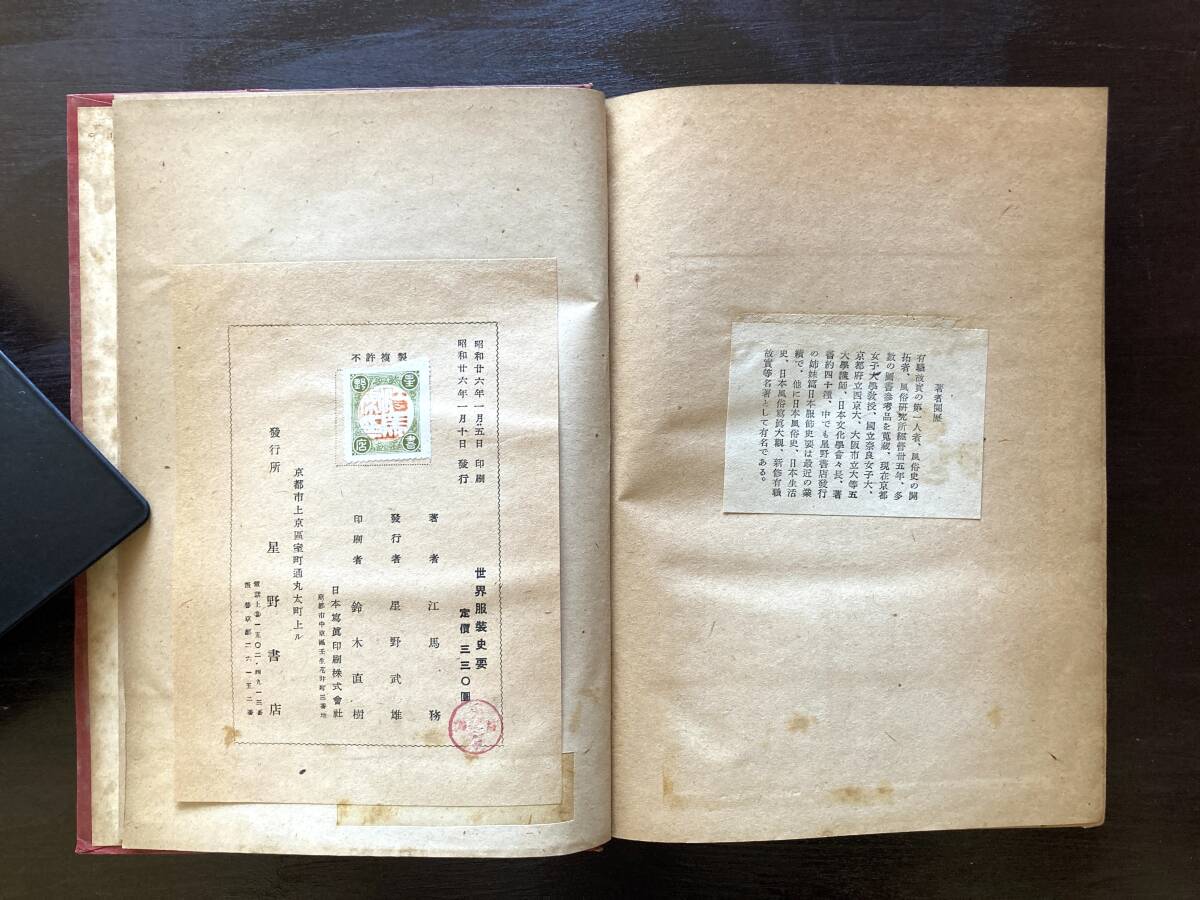 著者閲歴
有職故實の第一人者、風俗史の開
拓者、風俗研究所經營卅五年、多
數の圖書參考品を蒐藏、現在京都
女子大學教授、國立奈良女子大、
京都府立西京大、大阪市立大等五
大學講師、日本文化學會々長、著
書約四十種、中でも星野書店發行
の姉妹篇日本服飾史要は最近の業
績で、他に日本風俗史、日本生活
史、日本風俗寫眞大觀、新修有職
故實等名著として有名である。
世界服裝史要
定價 三三〇圓
昭和廿六年一月五日 印刷
昭和廿六年一月十日 發行
著者 江馬務
發行者 星野武雄
印刷者 鈴木直樹
日本寫眞印刷株式會社
京都市中京區壬生花井町三番地
不許複製
星野書店
京都市上京區室町通丸太町上ル
發行所 星野書店